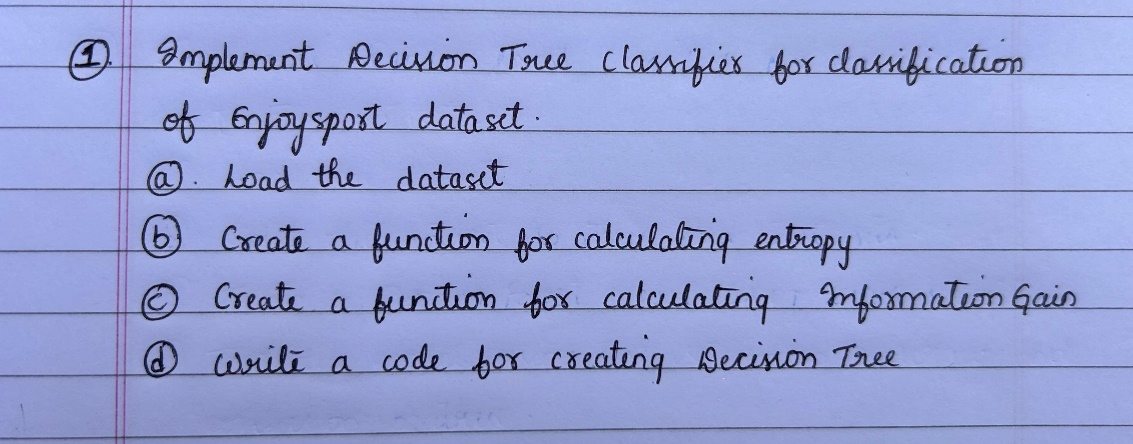 ①. Implement Decision Tree Classifier for classification
of Enjoysport dataset.
ⓐ. Load the dataset
ⓑ Create a function for calculating entropy
ⓒ Create a function for calculating Information Gain
ⓓ Write a code for creating Decision Tree